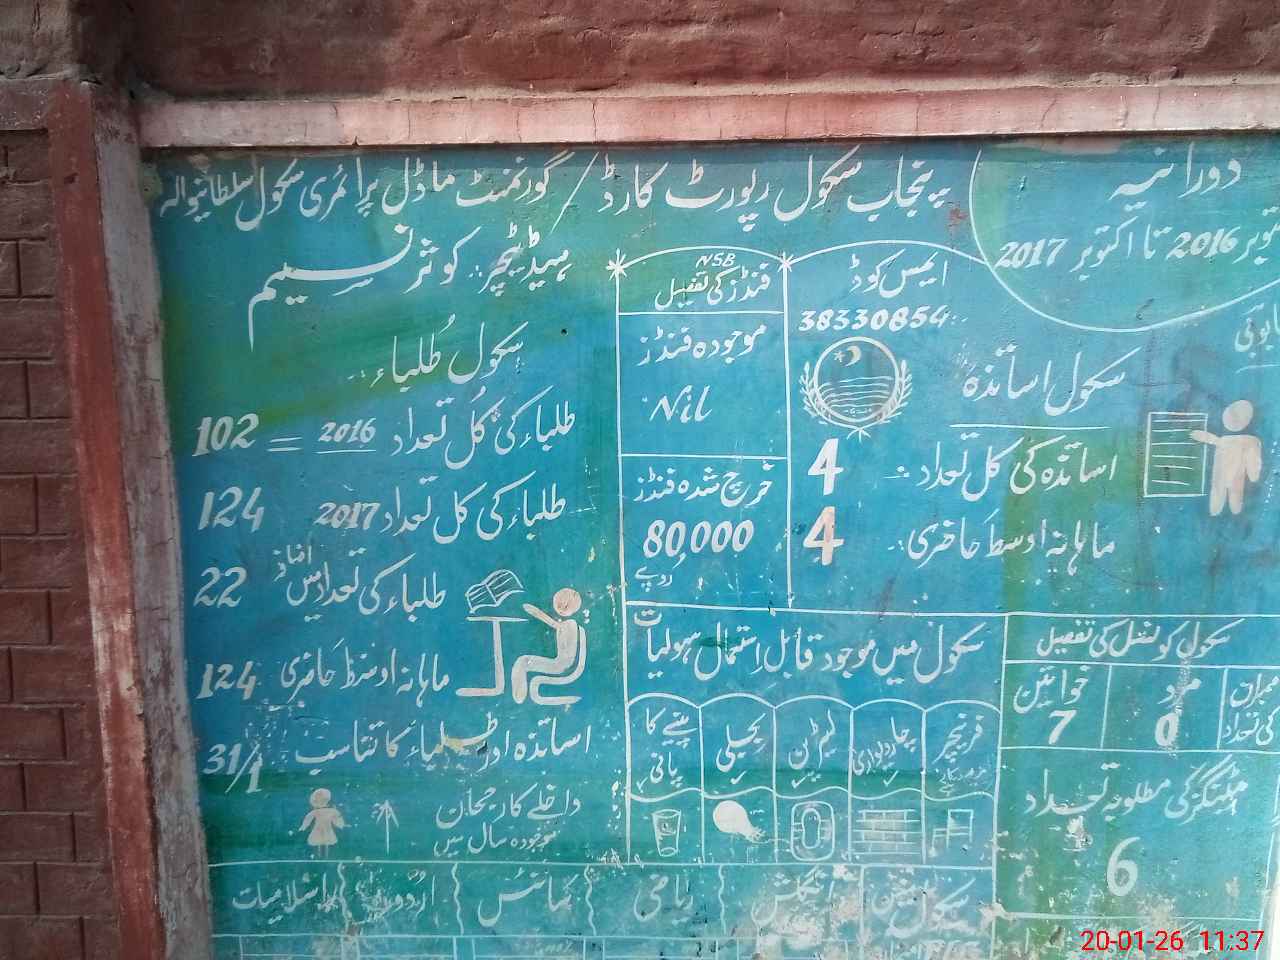 پنجاب سکول رپورٹ کارڈ / گورنمنٹ ماڈل پرائمری سکول سلطانیوالہ
دورانیہ
2016 تا اکتوبر 2017
ہیڈ ٹیچر: کوثر نسیم
سکول طلباء
طلباء کی کُل تعداد 2016 = 102
طلباء کی کل تعداد 2017 124
طلباء کی تعداد میں اضافہ 22
ماہانہ اوسط حاضری 124
اساتذہ اور طلباء کا تناسب 31/1
داخلے کا رجحان
موجودہ سال میں
NSB
فنڈز کی تفصیل
موجودہ فنڈز
Nil
خرچ شدہ فنڈز
80,000
روپے
ایمس کوڈ
38330854
سکول اساتذہ
اساتذہ کی کل تعداد :- 4
ماہانہ اوسط حاضری :- 4
سکول میں موجود قابل استعمال سہولیات
فرنیچر
چاردیواری
لیٹرین
بجلی
پینے کا پانی
سکول کونسل کی تفصیل
ممبران کی تعداد
مرد 0
خواتین 7
میٹنگز کی مطلوبہ تعداد
6
سکول
انگلش
ریاضی
سائنس
اردو
اسلامیات
20-01-26 11:37